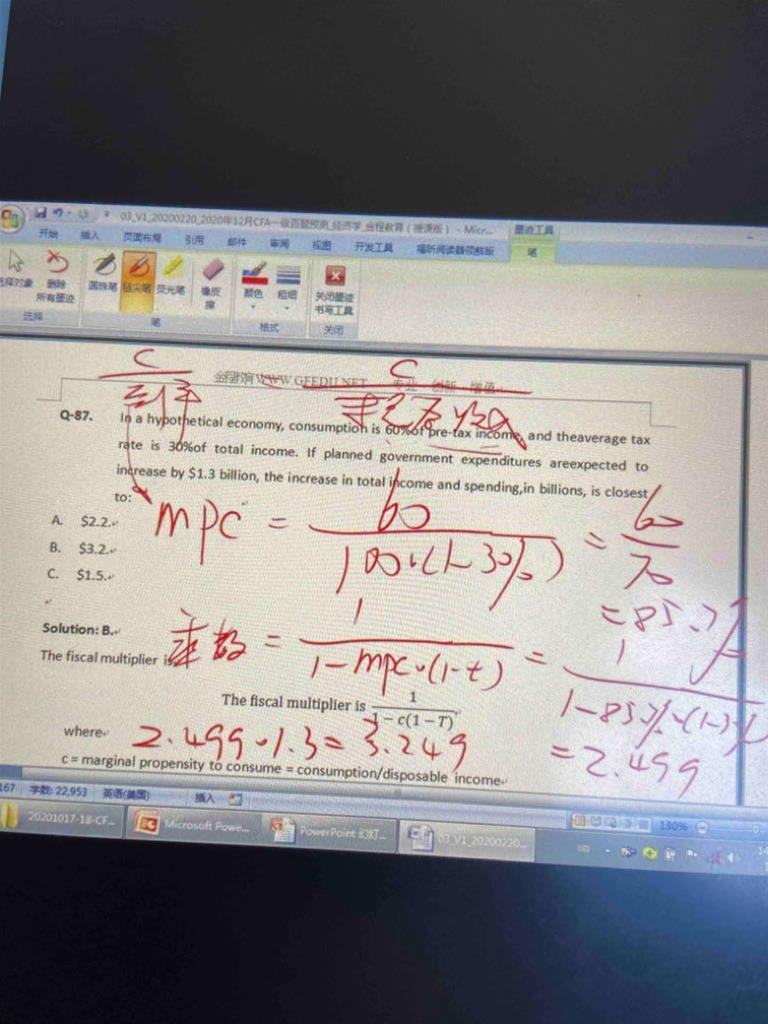 03_V1_20200220_2020年12月CFA一级百题预测_经济学_金程教育（授课版） - Micr...
墨迹工具
开始 插入 页面布局 引用 邮件 审阅 视图 开发工具 福昕阅读器领鲜版 笔
选择对象 删除所有墨迹 圆珠笔 毡尖笔 荧光笔 橡皮擦 颜色 粗细 关闭墨迹书写工具
选择 笔 格式 关闭
C C
WWW.GFEDU.NET 专业 创新 增值
Q-87. In a hypothetical economy, consumption is 60%of pre-tax income, and theaverage tax
rate is 30%of total income. If planned government expenditures areexpected to
increase by $1.3 billion, the increase in total income and spending,in billions, is closest
to:
mpc = 60 / 100·(1-30%) = 60 / 70
= 85.7%
A. $2.2.
B. $3.2.
C. $1.5.
Solution: B.
The fiscal multiplier is
乘数 = 1 / 1-mpc·(1-t) = 1 / 1-85.7%·(1-30%)
= 2.499
The fiscal multiplier is 1 / 1 − c(1 − T)
where
2.499·1.3 = 3.249
c = marginal propensity to consume = consumption/disposable income
167 字数: 22,953 英语(美国) 插入 130%
20201017-18-CF... Microsoft Powe... PowerPoint 幻灯... 03_V1_20200220...